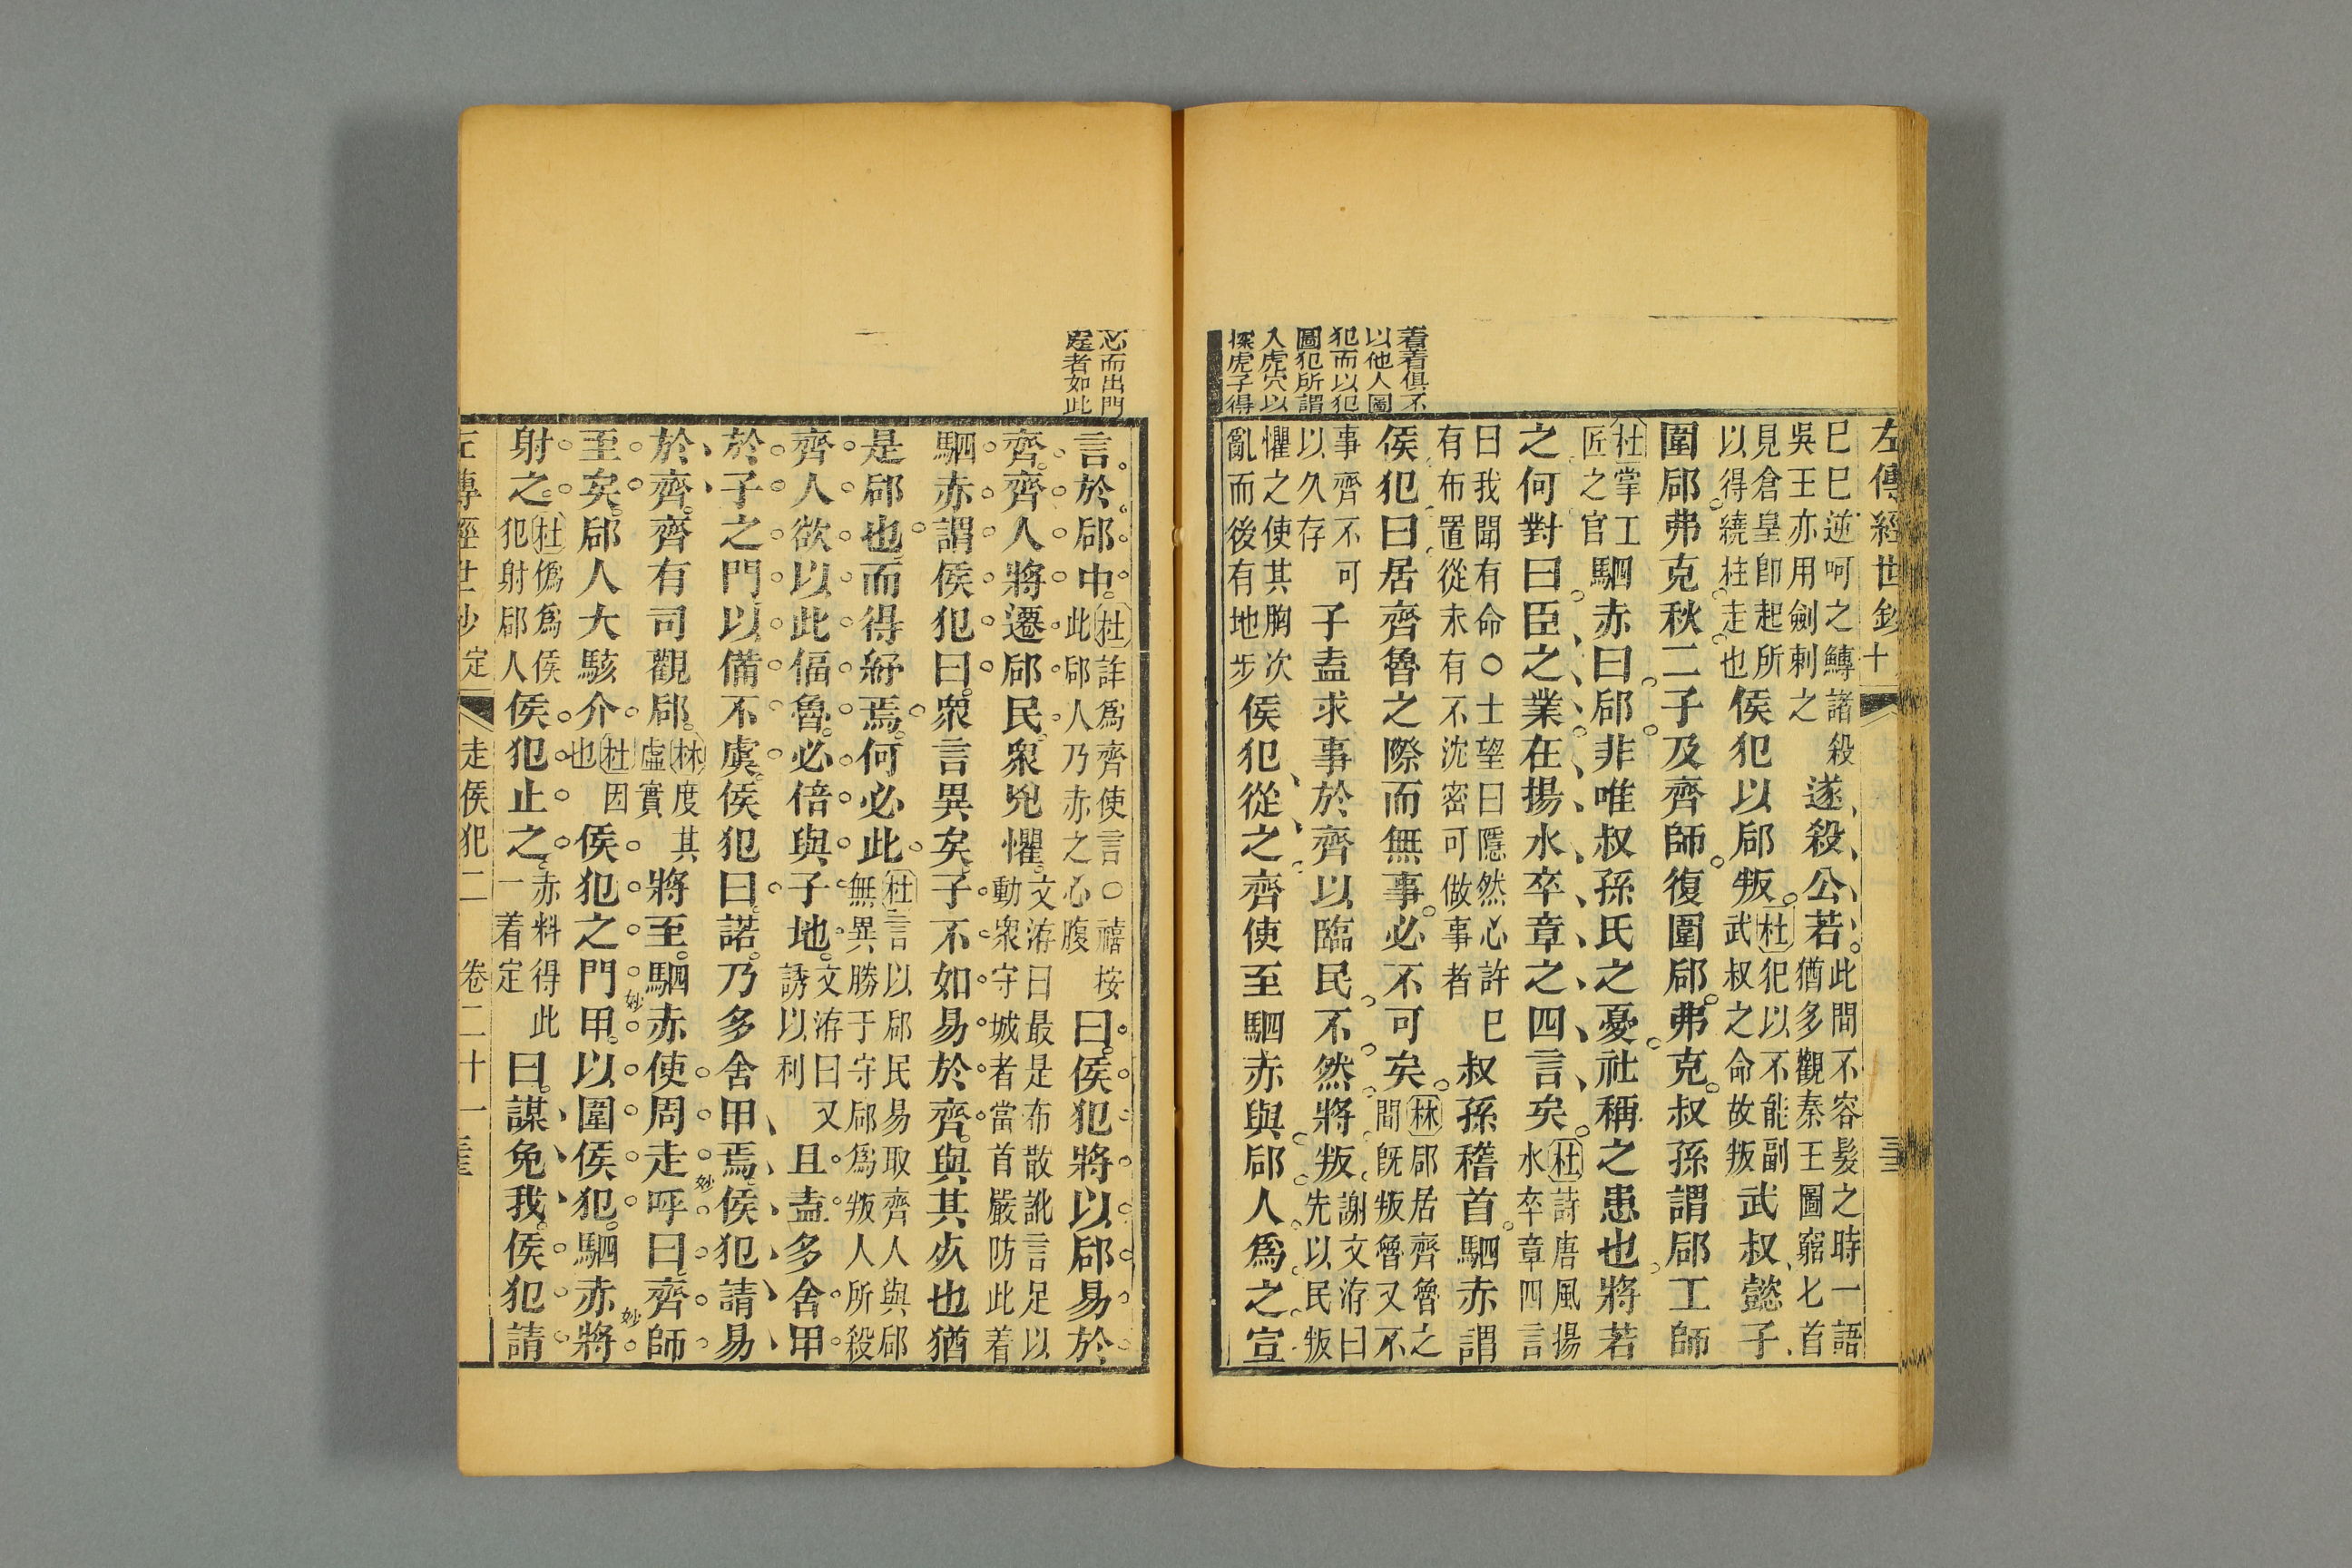 左傳經世鈔十
巳巳逆呵之鱄諸殺
吳王亦用劍刺之
遂殺公若
此間不容髮之時一語
猶多觀秦王圖窮匕首
見倉皇卽起所
以得繞柱走也
侯犯以郈叛
杜犯以不能副
武叔之命故叛
武叔懿子
圍郈弗克秋二子及齊師復圍郈弗克叔孫謂郈工師
杜掌工
匠之官
駟赤曰郈非唯叔孫氏之憂社稱之患也將若
之何對曰臣之業在揚水卒章之四言矣
杜詩唐風揚
水卒章四言
曰我聞有命○士望曰隱然心許巳
有布置從未有不沈密可做事者
叔孫稽首駟赤謂
侯犯曰居齊魯之際而無事必不可矣
林郈居齊魯之
間既叛魯又不
事齊不可
以久存
子盍求事於齊以臨民不然將叛
謝文洊曰
先以民叛
懼之使其胸次
亂而後有地步
侯犯從之齊使至駟赤與郈人爲之宣
着着俱不
以他人圖
犯而以犯
圖犯所謂
入虎穴以
探虎子得
心而出門
庭者如此
言於郈中
杜詐爲齊使言○禧按
此郈人乃赤之心腹
曰侯犯將以郈易於
齊齊人將遷郈民衆兇懼
文洊曰最是布散訛言足以
動衆守城者當首嚴防此着
駟赤謂侯犯曰衆言異矣子不如易於齊與其死也猶
是郈也而得紓焉何必此
杜言以郈民易取齊人與郈
無異勝于守郈爲叛人所殺
齊人欲以此偪魯必倍與子地
文洊曰又
誘以利
且盍多舍甲
於子之門以備不虞侯犯曰諾乃多舍甲焉侯犯請易
於齊齊有司觀郈
林度其
虛實
將至駟赤使周走呼曰齊師
妙
至矣郈人大駭介
杜因
也
侯犯之門甲以圍侯犯駟赤將
妙
妙
射之
杜僞爲侯
犯射郈人
侯犯止之
赤料得此
一着定
曰謀免我侯犯請
左傳經世鈔定
走侯犯二
卷二十一